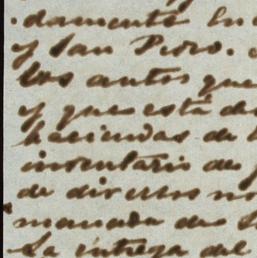 damente en
y San Pedro.
los autos que
y que está de
haciendas de
inventario de
de diversos no
manada de
La entrega del